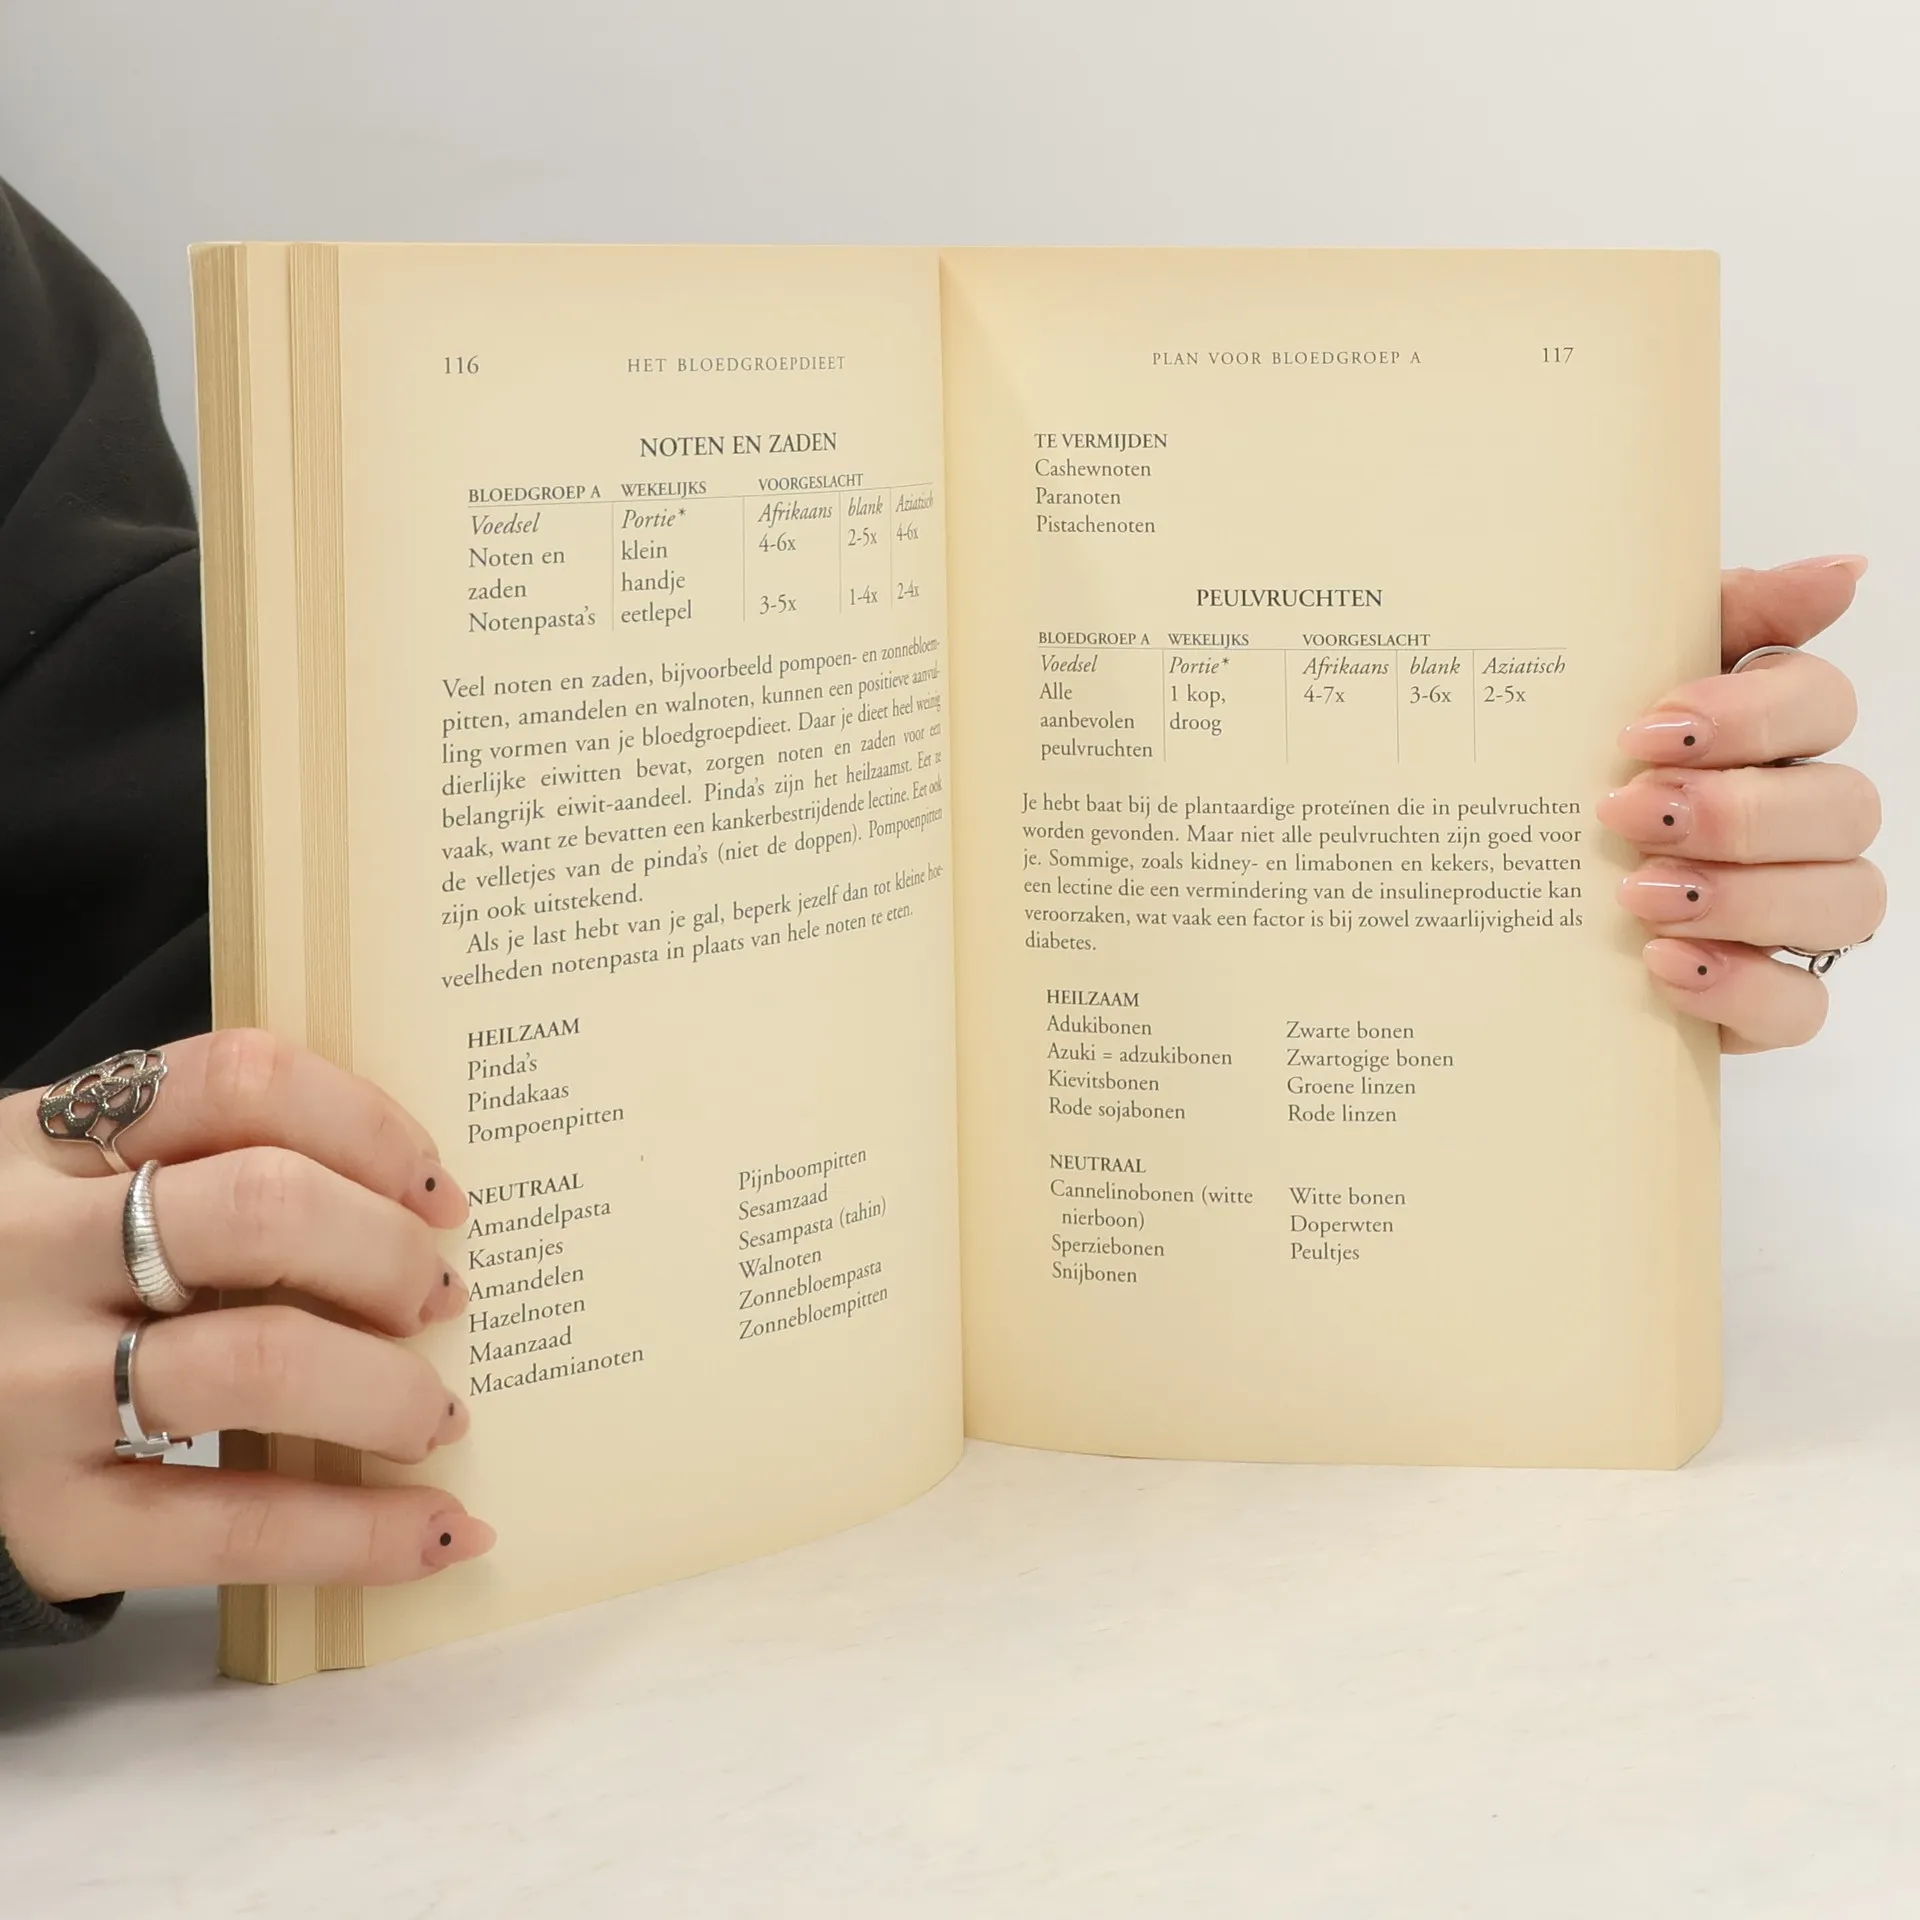 116
HET BLOEDGROEPDIEET
NOTEN EN ZADEN
BLOEDGROEP A WEKELIJKS VOORGESLACHT
Voedsel Portie* Afrikaans blank Aziatisch
Noten en klein 4-6x 2-5x 4-6x
zaden handje
Notenpasta's eetlepel 3-5x 1-4x 2-4x
Veel noten en zaden, bijvoorbeeld pompoen- en zonnebloem-
pitten, amandelen en walnoten, kunnen een positieve aanvul-
ling vormen van je bloedgroepdieet. Daar je dieet heel weinig
dierlijke eiwitten bevat, zorgen noten en zaden voor een
belangrijk eiwit-aandeel. Pinda's zijn het heilzaamst. Eet ze
vaak, want ze bevatten een kankerbestrijdende lectine. Eet ook
de velletjes van de pinda's (niet de doppen). Pompoenpitten
zijn ook uitstekend.
Als je last hebt van je gal, beperk jezelf dan tot kleine hoe-
veelheden notenpasta in plaats van hele noten te eten.
HEILZAAM
Pinda's
Pindakaas
Pompoenpitten
NEUTRAAL
Amandelpasta
Kastanjes
Amandelen
Hazelnoten
Maanzaad
Macadamianoten
Pijnboompitten
Sesamzaad
Sesampasta (tahin)
Walnoten
Zonnebloempasta
Zonnebloempitten
PLAN VOOR BLOEDGROEP A
117
TE VERMIJDEN
Cashewnoten
Paranoten
Pistachenoten
PEULVRUCHTEN
BLOEDGROEP A WEKELIJKS VOORGESLACHT
Voedsel Portie* Afrikaans blank Aziatisch
Alle 1 kop, 4-7x 3-6x 2-5x
aanbevolen droog
peulvruchten
Je hebt baat bij de plantaardige proteïnen die in peulvruchten
worden gevonden. Maar niet alle peulvruchten zijn goed voor
je. Sommige, zoals kidney- en limabonen en kekers, bevatten
een lectine die een vermindering van de insulineproductie kan
veroorzaken, wat vaak een factor is bij zowel zwaarlijvigheid als
diabetes.
HEILZAAM
Adukibonen
Azuki = adzukibonen
Kievitsbonen
Rode sojabonen
Zwarte bonen
Zwartogige bonen
Groene linzen
Rode linzen
NEUTRAAL
Cannelinobonen (witte
nierboon)
Sperziebonen
Snijbonen
Witte bonen
Doperwten
Peultjes